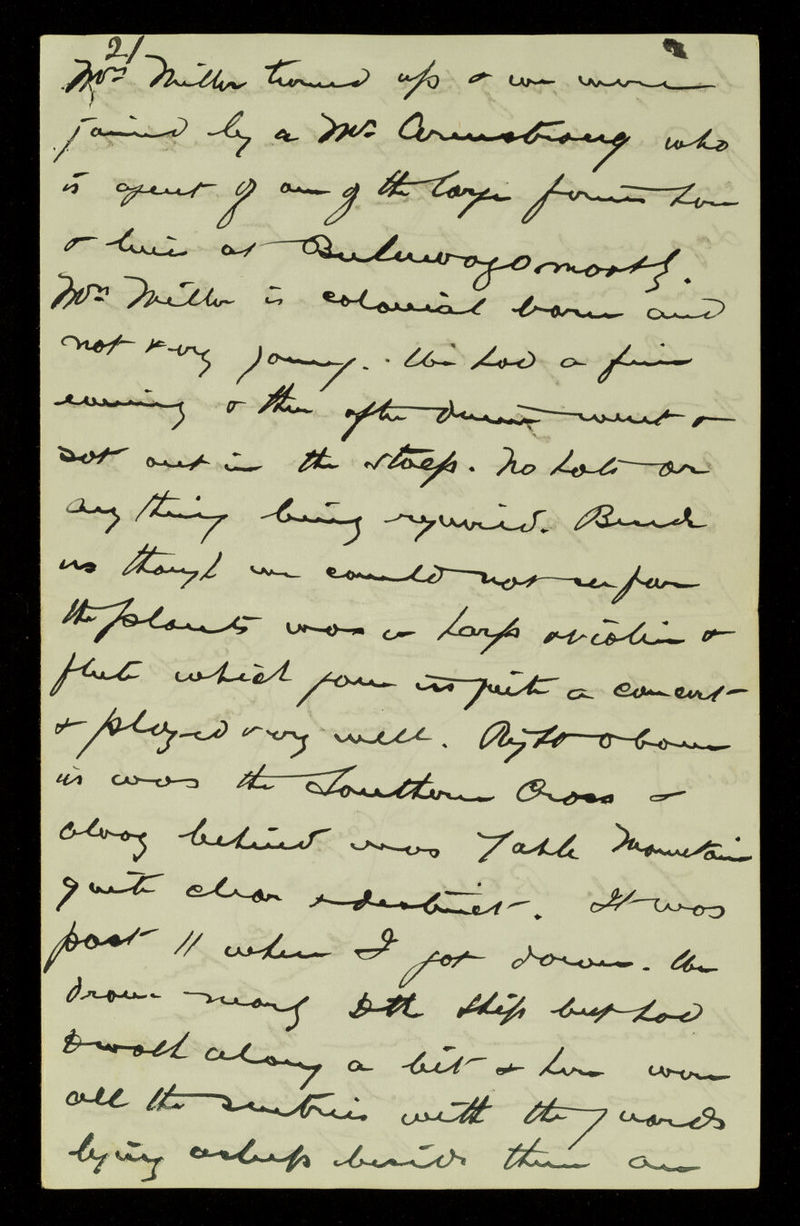 21
Mrs Miller turned up & we were
joined by a Mr Armstrong who
is agent of one of the large firms here
& lives at Buluwayo mostly.
Mrs Miller is colonial born and
not very young. We had a fine
evening & then after dinner went &
sat out in the stoep. No hats or
any thing being required. Beside
us though we could not see for
the plants was a harp a violin &
flute which gave us quite a concert
& played very well. Right above
us was the Southern Cross &
away behind was Table Mountain
quite clear & distinct. It was
past 11 when I got down. We
drove nearly to the ship but had
to walk along a bit & here were
all the sentries with the guards
lying asleep beside them on